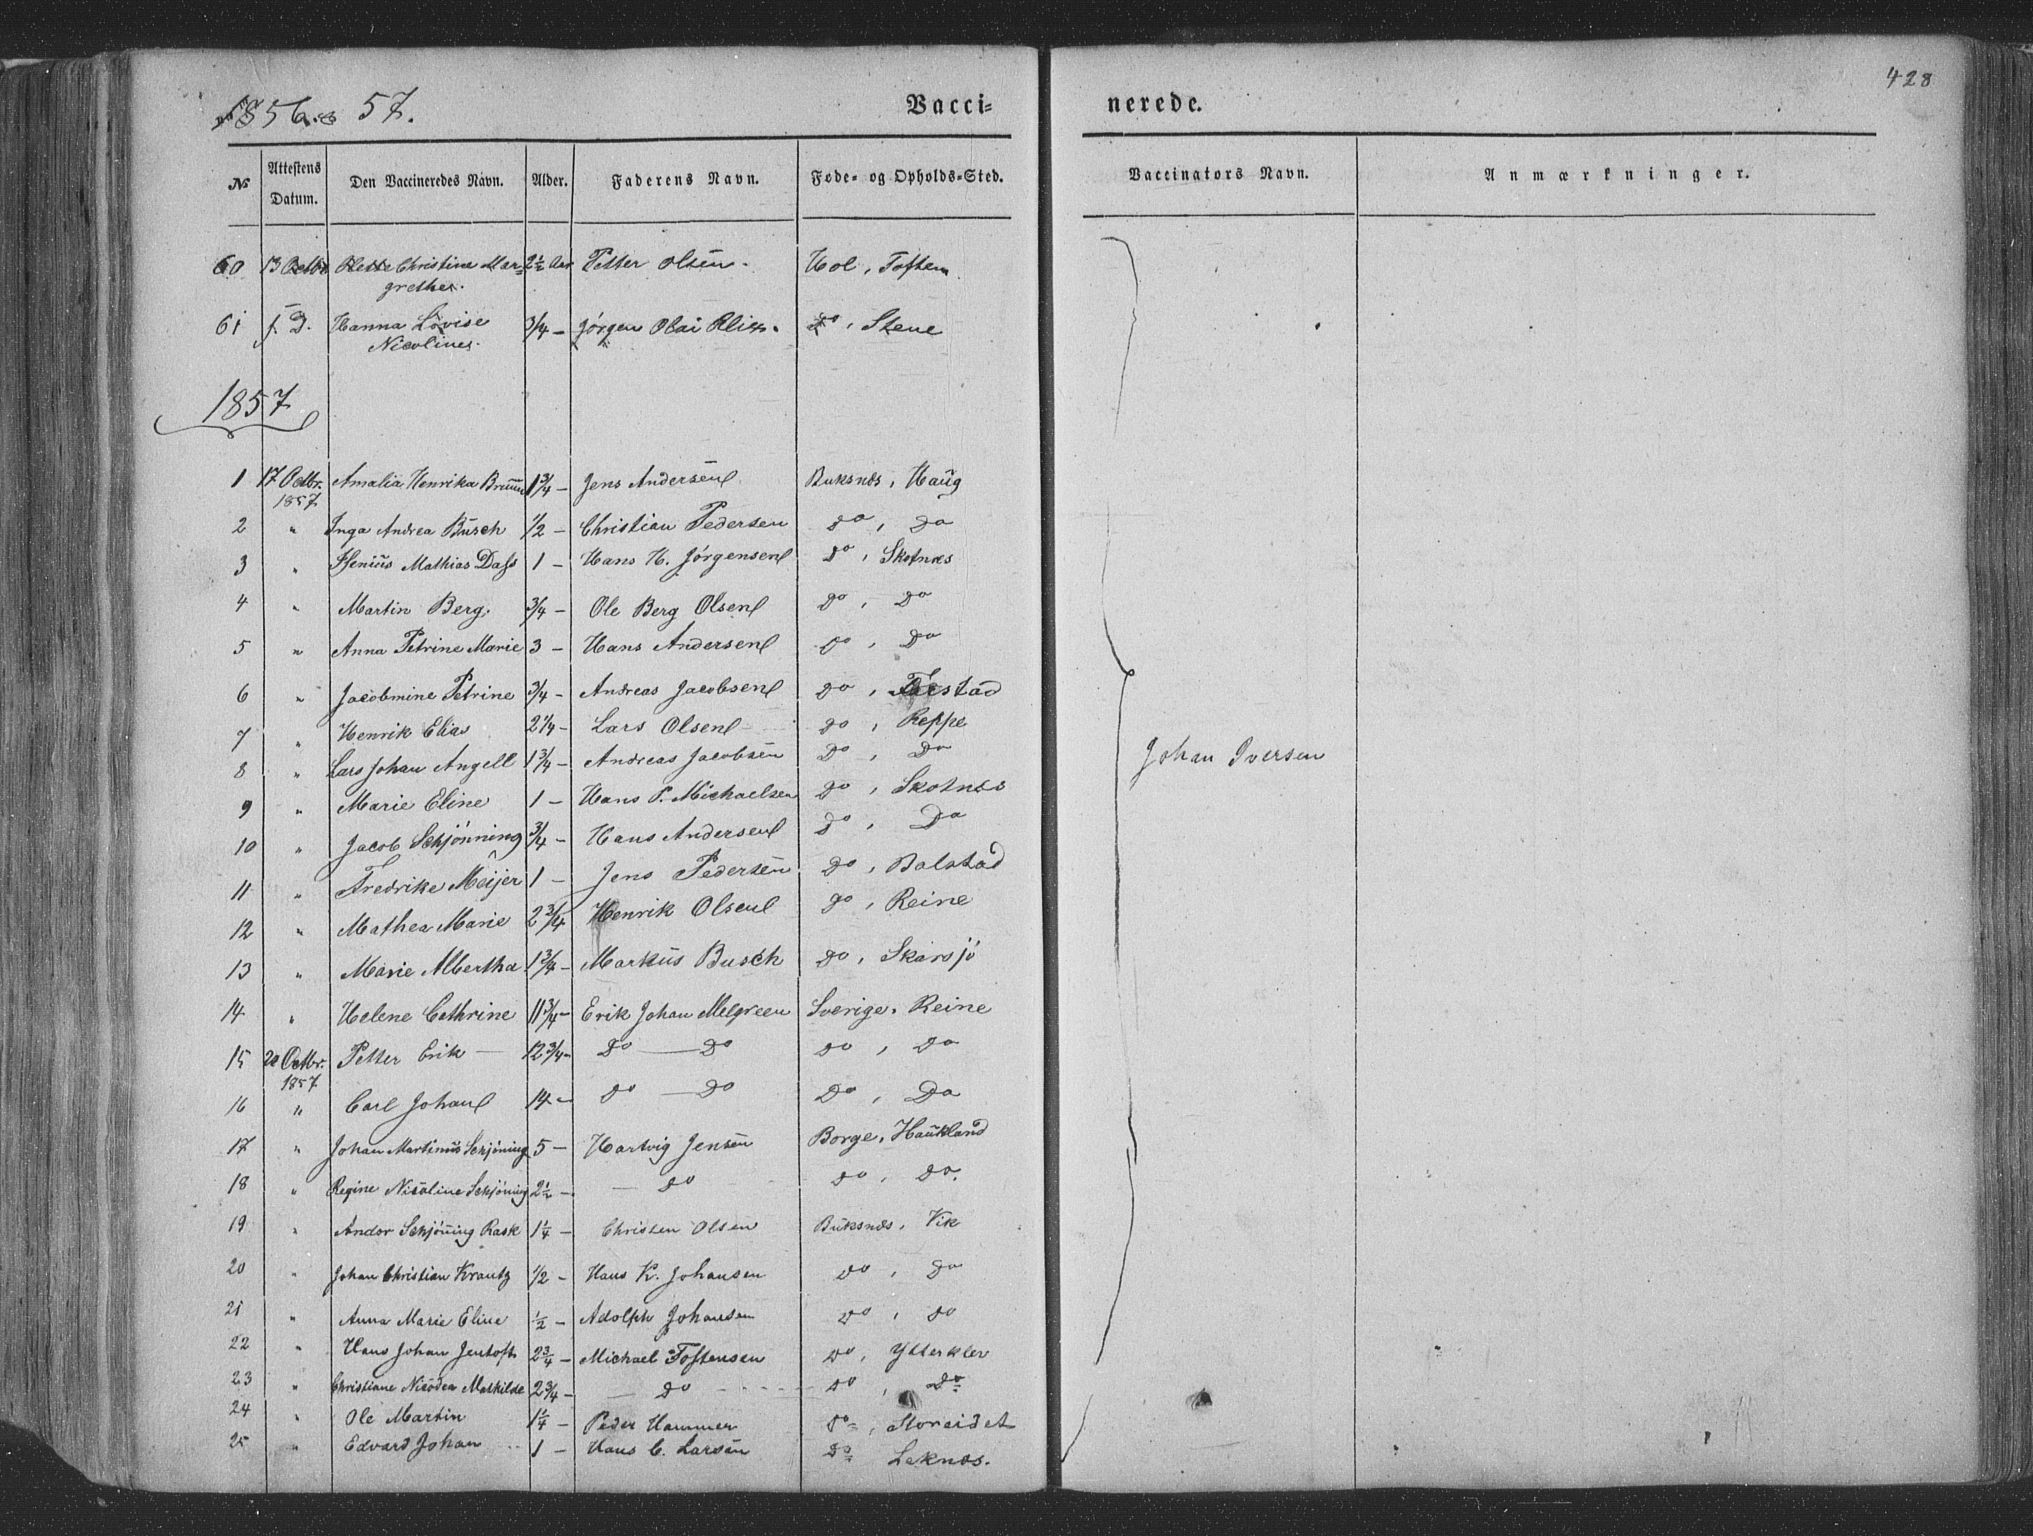 428
1856 & 57.
Vacci-
nerede.
No
Attestens Datum.
Den Vaccineredes Navn.
Alder.
Faderens Navn.
Føde- og Opholds-Sted.
Vaccinators Navn.
Anmærkninger.
60 13 Octbr Christine Mar- 2½ Aar Petter Olsen. Hol, Toften
grethe.
61 f. D. Hanna Lovise 3/4 - Jörgen Olai Do, Stene
Nicoline.
1857
1 17 Octbr. Amalia Henrika Bruun 1 3/4 - Jens Andersen Buksnæs, Haug
1857
2 " Inga Andrea Busch 1/2 - Christian Pedersen Do, Do
3 " Mathias Dass 1 - Hans H. Jörgensen Do, Skotnæs
4 " Martin Berg. 3/4 - Ole Berg Olsen Do, Do
5 " Anna Petrine Marie 3 - Hans Andersen Do, Do
6 " Jacobmine Petrine 3/4 - Andreas Jacobsen Do, Farstad
7 " Henrik Elias 2 1/4 - Lars Olsen Do, Reppe
8 " Lars Johan Angell 1 3/4 - Andreas Jacobsen Do, Do
Johan Iversen
9 " Marie Eline 1 - Hans P. Michaelsen Do, Skotnes
10 " Jacob Schjönning 3/4 - Hans Andersen Do, Do
11 " Fredrike Meijer 1 - Jens Pedersen Do, Balstad
12 " Mathea Marie 2 3/4 Henrik Olsen Do, Reine
13 " Marie Albertha 1 3/4 - Markus Busch Do, Skarsjö
14 " Helene Cathrine 11 3/4 - Erik Johan Melgreen Sverige. Reine
15 20 Octbr. Petter Erik - 12 3/4 - Do - Do Do, Do
1857
16 " Carl Johan 14 - Do - Do Do, Do
17 " Johan Martinus Schjöning 5 - Hartvig Jensen Borge. Haukland
18 " Regine Nicoline Schjöning 2½ - - Do Do, Do.
19 " Andor Schjöning Rask 1¼ - Christen Olsen Buksnæs. Vik
20 " Johan Christian Krantz 1/2 - Hans K. Johansen Do, Do
21 " Anna Marie Eline ½ - Adolph Johansen Do, Do
22 " Hans Johan Jentoft 2¾ - Michael Toftensen Do, Ytterkler
23 " Christiane Nicodea Mathilde 2 3/4 - - Do - Do, Do
24 " Ole Martin 1¼ - Peder Hammer Do, Storeidet
25 " Edvard Johan 1 - Hans C. Larsen Do Leknes.